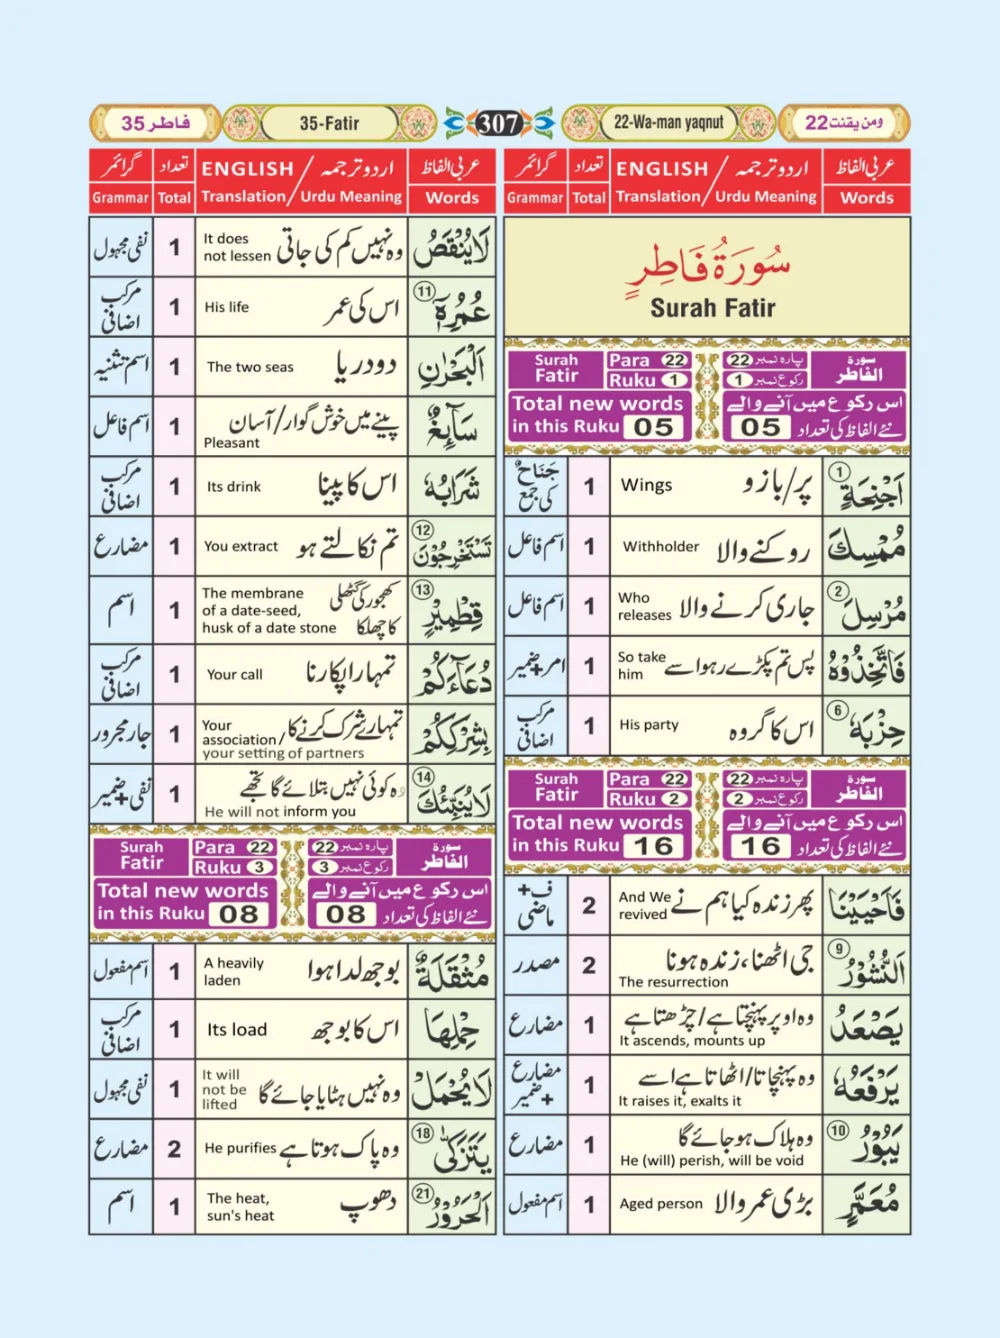 فاطر 35
35-Fatir
307
22-Wa-man yaqnut
ومن يقنت 22
عربی الفاظ اردو ترجمہ / ENGLISH تعداد گرائمر
Words Urdu Meaning / Translation Total Grammar
سُورَةُ فَاطِرٍ
Surah Fatir
Surah Fatir Para 22 Ruku 1
سورة الفاطر پارہ نمبر 22 رکوع نمبر 1
Total new words in this Ruku 05
اس رکوع میں آنے والے نئے الفاظ کی تعداد 05
اَجْنِحَةٍ ① پر/بازو Wings 1 جَنَاحٌ کی جمع
مُمْسِكَ روکنے والا Withholder 1 اسم فاعل
مُرْسِلَ ② جاری کرنے والا Who releases 1 اسم فاعل
فَاتَّخِذُوْهُ پس تم پکڑے رہو اسے So take him 1 امر+ضمیر
حِزْبَهٗ ⑥ اس کا گروہ His party 1 مرکب اضافی
Surah Fatir Para 22 Ruku 2
سورة الفاطر پارہ نمبر 22 رکوع نمبر 2
Total new words in this Ruku 16
اس رکوع میں آنے والے نئے الفاظ کی تعداد 16
فَاَحْيَيْنَا پھر زندہ کیا ہم نے And We revived 2 ف+ماضی
النُّشُوْرُ ⑨ جی اٹھنا، زندہ ہونا The resurrection 2 مصدر
يَصْعَدُ وہ اوپر پہنچتا ہے/چڑھتا ہے It ascends, mounts up 1 مضارع
يَرْفَعُهٗ وہ پہنچاتا/اٹھاتا ہے اسے It raises it, exalts it 1 مضارع+ضمیر
يَبُوْرُ ⑩ وہ ہلاک ہو جائے گا He (will) perish, will be void 1 مضارع
مُعَمَّرٍ بڑی عمر والا Aged person 1 اسم مفعول
عربی الفاظ اردو ترجمہ / ENGLISH تعداد گرائمر
Words Urdu Meaning / Translation Total Grammar
لَا يُنْقَصُ وہ نہیں کم کی جاتی It does not lessen 1 نفی مجہول
عُمُرِهٖٓ ⑪ اس کی عمر His life 1 مرکب اضافی
الْبَحْرٰنِ دو دریا The two seas 1 اسم تثنیہ
سَآئِغٌ پینے میں خوش گوار/آسان Pleasant 1 اسم فاعل
شَرَابُهٗ اس کا پینا Its drink 1 مرکب اضافی
تَسْتَخْرِجُوْنَ ⑫ تم نکالتے ہو You extract 1 مضارع
قِطْمِيْرٍ ⑬ کھجور کی گٹھلی کا چھلکا The membrane of a date-seed, husk of a date stone 1 اسم
دُعَآءَكُمْ تمہارا پکارنا Your call 1 مرکب اضافی
بِشِرْكِكُمْ تمہارے شرک کرنے کا Your association / your setting of partners 1 جار مجرور
لَا يُنَبِّئُكَ ⑭ وہ کوئی نہیں بتلائے گا تجھے He will not inform you 1 نفی+ضمیر
Surah Fatir Para 22 Ruku 3
سورة الفاطر پارہ نمبر 22 رکوع نمبر 3
Total new words in this Ruku 08
اس رکوع میں آنے والے نئے الفاظ کی تعداد 08
مُثْقَلَةٌ بوجھ لدا ہوا A heavily laden 1 اسم مفعول
حِمْلِهَا اس کا بوجھ Its load 1 مرکب اضافی
لَا يُحْمَلْ وہ نہیں ہٹایا جائے گا It will not be lifted 1 نفی مجہول
يَتَزَكّٰى ⑱ وہ پاک ہوتا ہے He purifies 2 مضارع
الْحَرُوْرُ ㉑ دھوپ The heat, sun's heat 1 اسم